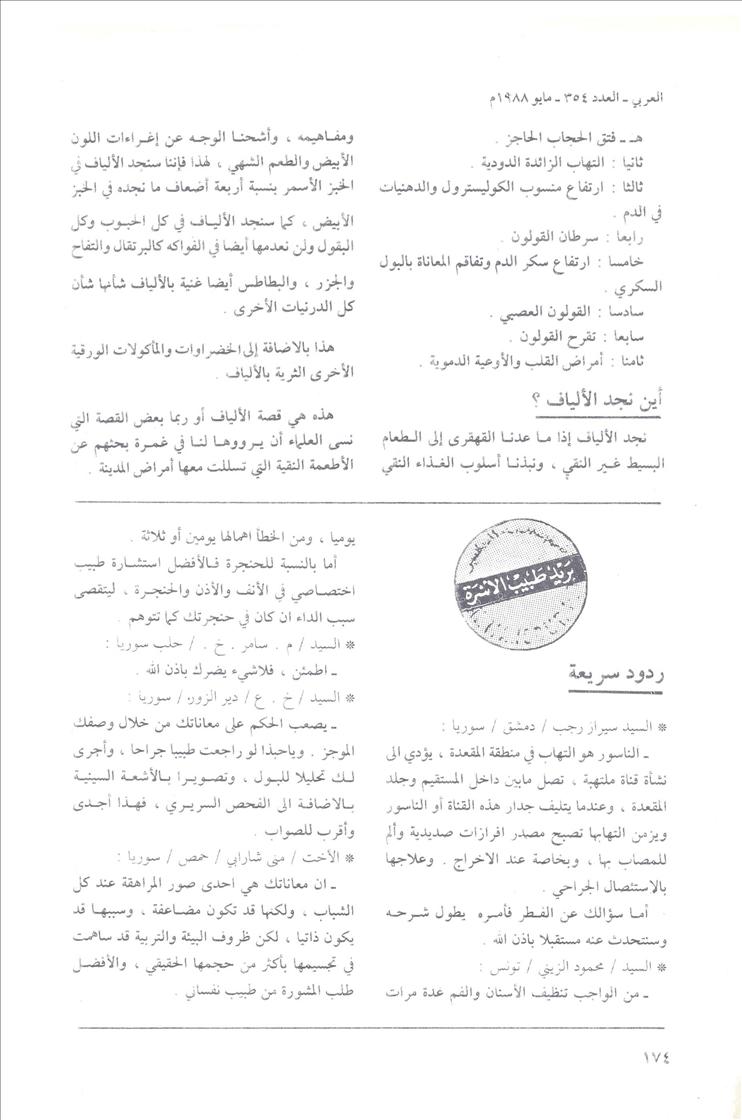 العربي ــ العدد ٣٥٤ ــ مايو ١٩٨٨م
هــ ــ فتق الحجاب الحاجز .
ثانيا : التهاب الزائدة الدودية .
ثالثا : ارتفاع منسوب الكوليسترول والدهنيات
في الدم .
رابعا : سرطان القولون .
خامسا : ارتفاع سكر الدم وتفاقم المعاناة بالبول
السكري .
سادسا : القولون العصبي .
سابعا : تقرح القولون .
ثامنا : أمراض القلب والأوعية الدموية .
أين نجد الألياف ؟
نجد الألياف إذا ما عدنا القهقرى إلى الطعام
البسيط غير النقي ، ونبذنا أسلوب الغذاء النقي
ومفاهيمه ، وأشحنا الوجه عن إغراءات اللون
الأبيض والطعم الشهي ، لهذا فإننا سنجد الألياف في
الخبز الأسمر بنسبة أربعة أضعاف ما نجده في الخبز
الأبيض ، كما سنجد الألياف في كل الحبوب وكل
البقول ولن نعدمها أيضا في الفواكه كالبرتقال والتفاح
والجزر ، والبطاطس أيضا غنية بالألياف شأنها شأن
كل الدرنيات الأخرى .
هذا بالاضافة إلى الخضراوات والمأكولات الورقية
الأخرى الثرية بالألياف .
هذه هي قصة الألياف أو ربما بعض القصة التي
نسى العلماء أن يرووها لنا في غمرة بحثهم عن
الأطعمة النقية التي تسللت معها أمراض المدينة .
بريد طبيب الأسرة
ردود سريعة
* السيد سيراز رجب / دمشق / سوريا :
ــ الناسور هو التهاب في منطقة المقعدة ، يؤدي الى
نشأة قناة ملتهبة ، تصل مابين داخل المستقيم وجلد
المقعدة ، وعندما يتليف جدار هذه القناة أو الناسور
ويزمن التهابها تصبح مصدر افرازات صديدية وألم
للمصاب بها ، وبخاصة عند الاخراج . وعلاجها
بالاستئصال الجراحي .
أما سؤالك عن الفطر فأمره يطول شرحه
وسنتحدث عنه مستقبلا باذن الله .
* السيد / محمود الزيني / تونس :
ــ من الواجب تنظيف الأسنان والفم عدة مرات
يوميا ، ومن الخطأ اهمالها يومين أو ثلاثة .
أما بالنسبة للحنجرة فالأفضل استشارة طبيب
اختصاصي في الأنف والأذن والحنجرة ، ليتقصى
سبب الداء ان كان في حنجرتك كما تتوهم .
* السيد / م . سامر . خ . / حلب سوريا :
ــ اطمئن ، فلاشيء يضرك باذن الله .
* السيد / خ . ع / دير الزور / سوريا :
ــ يصعب الحكم على معاناتك من خلال وصفك
الموجز . وياحبذا لو راجعت طبيبا جراحا ، وأجرى
لك تحليلا للبول ، وتصويرا بالأشعة السينية
بالاضافة الى الفحص السريري ، فهذا أجدى
وأقرب للصواب .
* الأخت / منى شارابي / حمص / سوريا :
ــ ان معاناتك هي احدى صور المراهقة عند كل
الشباب ، ولكنها قد تكون مضاعفة ، وسببها قد
يكون ذاتيا ، لكن ظروف البيئة والتربية قد ساهمت
في تجسيمها بأكثر من حجمها الحقيقي ، والأفضل
طلب المشورة من طبيب نفساني .
١٧٤